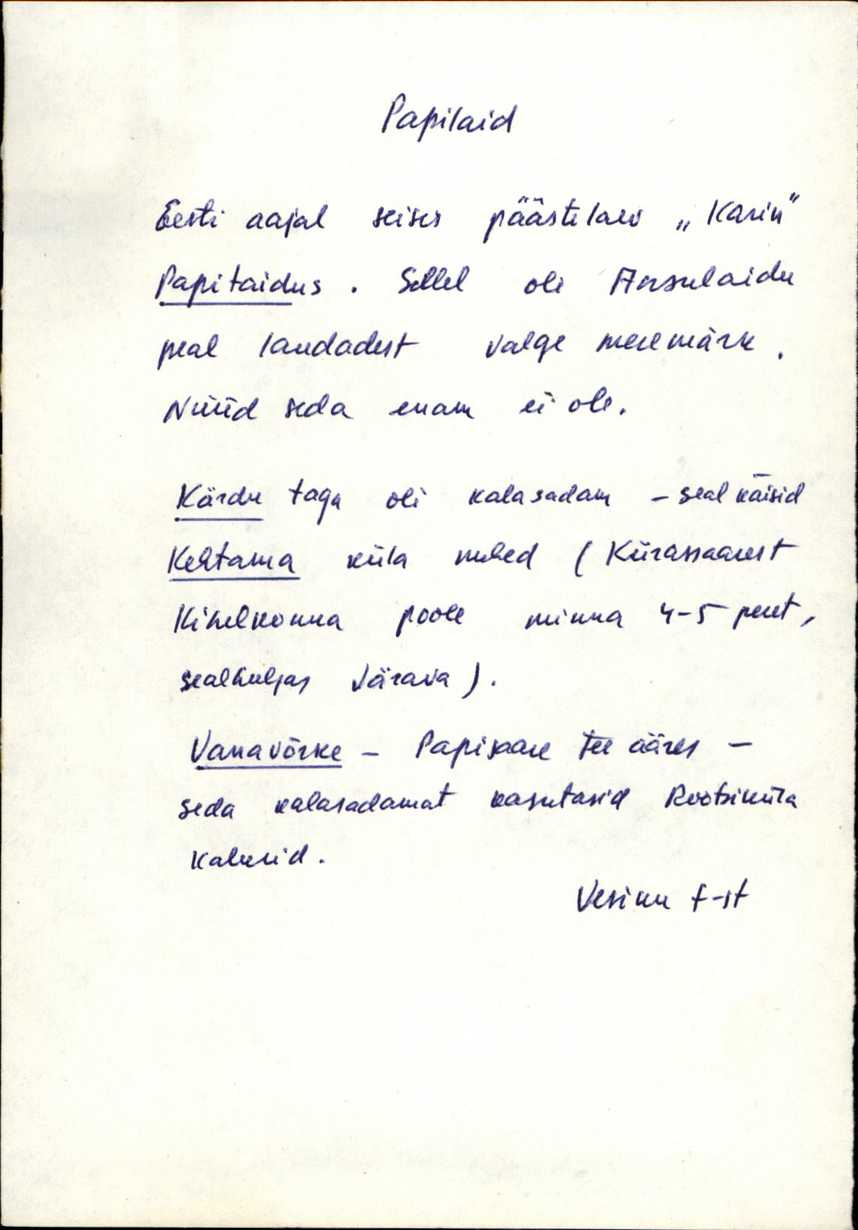 Papilaid
Eesti aajal seises päästelaev „Karin"
Papilaidus. Sellel oli
peal laudadest valge meremärk.
Nüüd seda enam ei ole.
Kärdu taga oli kalasadam – seal käisid
küla mehed (Kiirassaarest
Kihelkonna poole minna 4-5 peret,
sealhulgas Värava).
Vanavõrke – Papisaare tee ääres –
seda kalasadamat kasutasid Rootsiküla
kalurid.
f-st